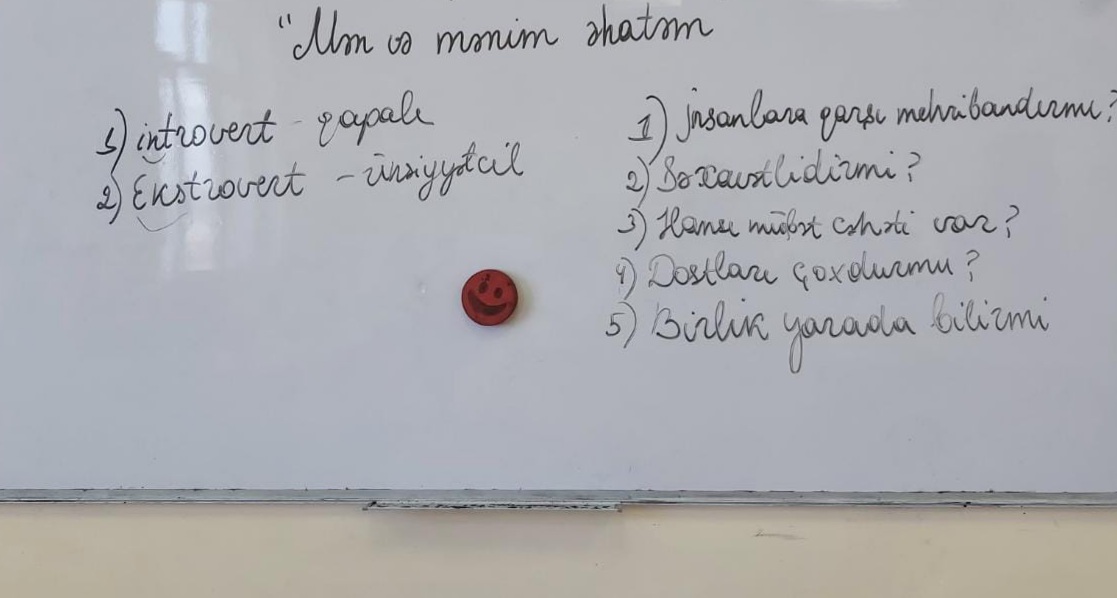 "Mən və mənim əhatəm
1) introvert - qapalı
2) Ekstrovert - ünsiyyətcil
1) İnsanlara qarşı mehribandırmı?
2) Səxavətlidirmi?
3) Hansı müsbət cəhəti var?
4) Dostları çoxdurmu?
5) Birlik yarada bilirmi